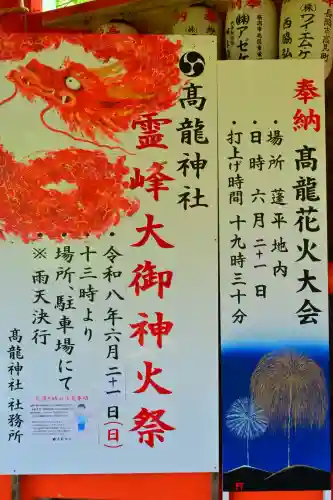 奉納 髙龍花火大会
・場所 蓬平地内
・日時 六月二十一日
打上げ時間 十九時三十分
髙龍神社
霊峰大御神火祭
・令和八年六月二十一日(日)
・十三時より
・場所、駐車場にて
※雨天決行
髙龍神社 社務所